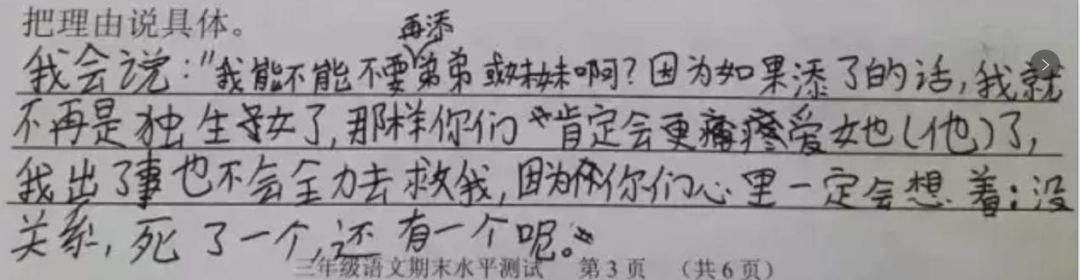 把理由说具体。
我会说：“我能不能不要再添弟弟或妹妹啊？因为如果添了的话，我就
不再是独生子女了，那样你们肯定会更疼爱她(他)了，
我出了事也不会全力去救我，因为你们心里一定会想着：没
关系，死了一个，还有一个呢。”
三年级语文期末水平测试 第3页 （共6页）